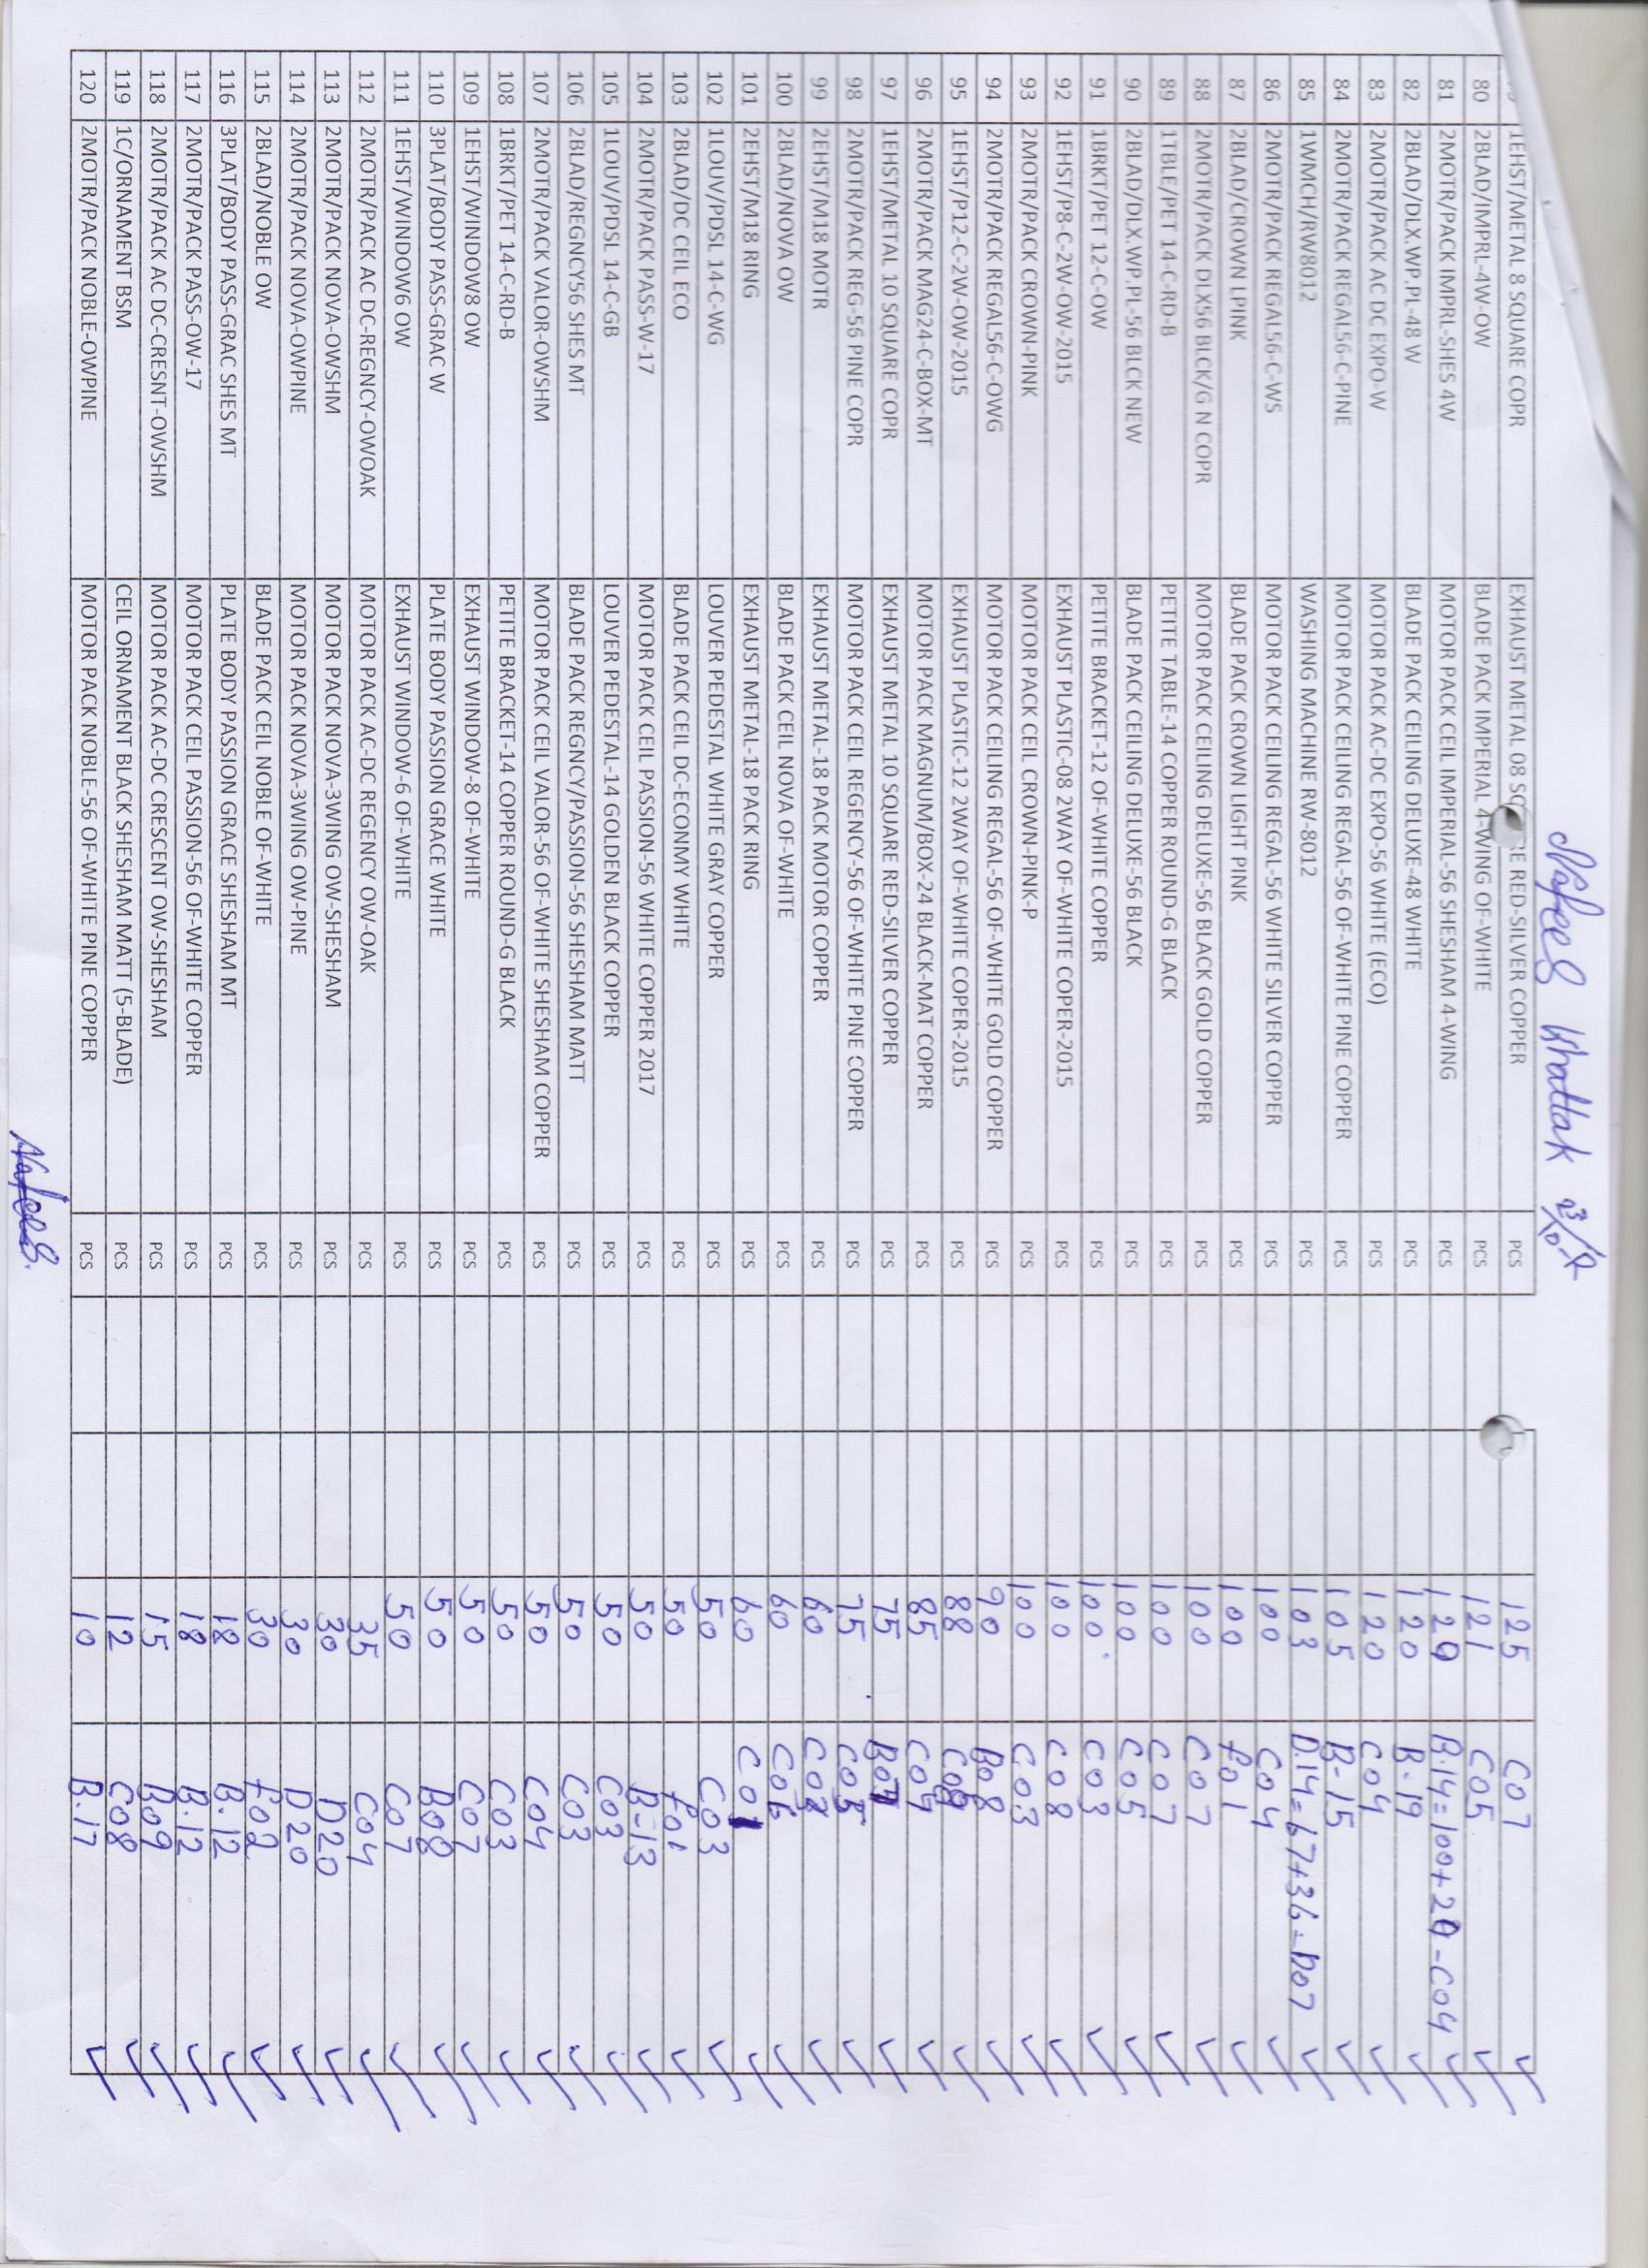 Nafees Khattak
1EHST/METAL 8 SQUARE COPR EXHAUST METAL 08 RED-SILVER COPPER PCS 125 C07
80 2BLAD/IMPRL-4W-OW BLADE PACK IMPERIAL 4-WING OF-WHITE PCS 121 C05
81 2MOTR/PACK IMPRL-SHES 4W MOTOR PACK CEIL IMPERIAL-56 SHESHAM 4-WING PCS 120 B.14=100+20-C04
82 2BLAD/DLX.WP.PL-48 W BLADE PACK CEILING DELUXE-48 WHITE PCS 120 B-19
83 2MOTR/PACK AC DC EXPO-W MOTOR PACK AC-DC EXPO-56 WHITE (ECO) PCS 120 C04
84 2MOTR/PACK REGAL56-C-PINE MOTOR PACK CEILING REGAL-56 OF-WHITE PINE COPPER PCS 105 B-15
85 1WMCH/RW8012 WASHING MACHINE RW-8012 PCS 103 D.14=67+36=D07
86 2MOTR/PACK REGAL56-C-WS MOTOR PACK CEILING REGAL-56 WHITE SILVER COPPER PCS 100 C04
87 2BLAD/CROWN LPINK BLADE PACK CROWN LIGHT PINK PCS 100 f01
88 2MOTR/PACK DLX56 BLCK/G N COPR MOTOR PACK CEILING DELUXE-56 BLACK GOLD COPPER PCS 100 C07
89 1TBLE/PET 14-C-RD-B PETITE TABLE-14 COPPER ROUND-G BLACK PCS 100 C07
90 2BLAD/DLX.WP.PL-56 BLCK NEW BLADE PACK CEILING DELUXE-56 BLACK PCS 100 C05
91 1BRKT/PET 12-C-OW PETITE BRACKET-12 OF-WHITE COPPER PCS 100. C03
92 1EHST/P8-C-2W-OW-2015 EXHAUST PLASTIC-08 2WAY OF-WHITE COPER-2015 PCS 100 C08
93 2MOTR/PACK CROWN-PINK MOTOR PACK CEIL CROWN-PINK-P PCS 100 C03
94 2MOTR/PACK REGAL56-C-OWG MOTOR PACK CEILING REGAL-56 OF-WHITE GOLD COPPER PCS 90 B08
95 1EHST/P12-C-2W-OW-2015 EXHAUST PLASTIC-12 2WAY OF-WHITE COPER-2015 PCS 88 C08
96 2MOTR/PACK MAG24-C-BOX-MT MOTOR PACK MAGNUM/BOX-24 BLACK-MAT COPPER PCS 85 C07
97 1EHST/METAL 10 SQUARE COPR EXHAUST METAL 10 SQUARE RED-SILVER COPPER PCS 75 B07
98 2MOTR/PACK REG-56 PINE COPR MOTOR PACK CEIL REGENCY-56 OF-WHITE PINE COPPER PCS 75 C05
99 2EHST/M18 MOTR EXHAUST METAL-18 PACK MOTOR COPPER PCS 60
100 2BLAD/NOVA OW BLADE PACK CEIL NOVA OF-WHITE PCS 60 C06
101 2EHST/M18 RING EXHAUST METAL-18 PACK RING PCS 60 C01
102 1LOUV/PDSL 14-C-WG LOUVER PEDESTAL WHITE GRAY COPPER PCS 50 C03
103 2BLAD/DC CEIL ECO BLADE PACK CEIL DC-ECONMY WHITE PCS 50 f01
104 2MOTR/PACK PASS-W-17 MOTOR PACK CEIL PASSION-56 WHITE COPPER 2017 PCS 50 B-13
105 1LOUV/PDSL 14-C-GB LOUVER PEDESTAL-14 GOLDEN BLACK COPPER PCS 50 C03
106 2BLAD/REGNCY56 SHES MT BLADE PACK REGNCY/PASSION-56 SHESHAM MATT PCS 50 C03
107 2MOTR/PACK VALOR-OWSHM MOTOR PACK CEIL VALOR-56 OF-WHITE SHESHAM COPPER PCS 50 C04
108 1BRKT/PET 14-C-RD-B PETITE BRACKET-14 COPPER ROUND-G BLACK PCS 50 C03
109 1EHST/WINDOW8 OW EXHAUST WINDOW-8 OF-WHITE PCS 50 C07
110 3PLAT/BODY PASS-GRAC W PLATE BODY PASSION GRACE WHITE PCS 50 B08
111 1EHST/WINDOW6 OW EXHAUST WINDOW-6 OF-WHITE PCS 50 C07
112 2MOTR/PACK AC DC-REGNCY-OWOAK MOTOR PACK AC-DC REGENCY OW-OAK PCS 35 C04
113 2MOTR/PACK NOVA-OWSHM MOTOR PACK NOVA-3WING OW-SHESHAM PCS 30 D20
114 2MOTR/PACK NOVA-OWPINE MOTOR PACK NOVA-3WING OW-PINE PCS 30 D20
115 2BLAD/NOBLE OW BLADE PACK CEIL NOBLE OF-WHITE PCS 30 f02
116 3PLAT/BODY PASS-GRAC SHES MT PLATE BODY PASSION GRACE SHESHAM MT PCS 18 B.12
117 2MOTR/PACK PASS-OW-17 MOTOR PACK CEIL PASSION-56 OF-WHITE COPPER PCS 18 B.12
118 2MOTR/PACK AC DC-CRESNT-OWSHM MOTOR PACK AC-DC CRESCENT OW-SHESHAM PCS 15 B09
119 1C/ORNAMENT BSM CEIL ORNAMENT BLACK SHESHAM MATT (5-BLADE) PCS 12 C08
120 2MOTR/PACK NOBLE-OWPINE MOTOR PACK NOBLE-56 OF-WHITE PINE COPPER PCS 10 B.17
Nafees.